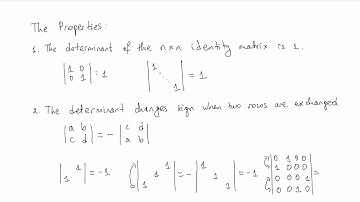 The Properties:
1. The determinant of the n×n identity matrix is 1.
|1 0|
|0 1| = 1    |1 ⋱ 1| = 1
2. The determinant changes sign when two rows are exchanged.
|a b|
|c d| = - |c d|
|a b|
|  1|
|1  | = -1    |    1|
|  1  |
|1    | = - |1    |
|  1  |
|    1| = -1    |0 1 0 0|
|1 0 0 0|
|0 0 0 1|
|0 0 1 0| =